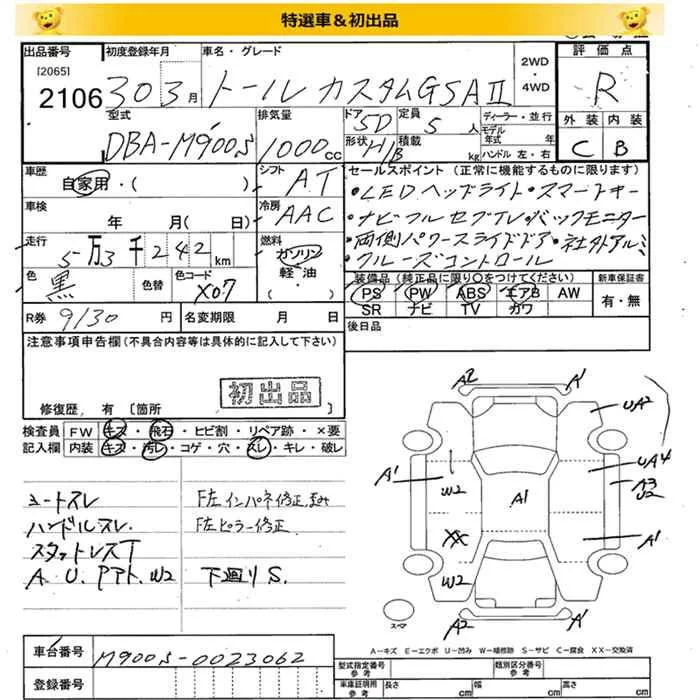 特選車&初出品
出品番号
[2065]
2106
初度登録年月
303月
車名・グレード
トール カスタムGSAⅡ
2WD
・
4WD
評価点
R
外装 内装
C B
型式
DBA-M900S
排気量
1000cc
ドア
5D
定員
5人
形状
H/B
積載
kg
ディーラー・並行
モデル年式 年
ハンドル 左・右
車歴
自家用・( )
シフト
AT
車検
年 月( 日)
冷房
AAC
走行
5万3千242km
燃料
ガソリン
軽油
・
( )
色
黒
色替
色コード
X07
R券 9130円
名変期限 月 日
セールスポイント(正常に機能するものに限ります)
・LEDヘッドライト・スマートキー
・ナビフルセグTV・バックモニター
・両側パワースライドドア・社外アルミ
・クルーズコントロール
装備品(純正品に限り○をつけてください)
PS PW ABS エアB AW
SR ナビ TV カワ
新車保証書
有・無
後日品
注意事項申告欄(不具合内容等は具体的に記入して下さい)
初出品
修復歴 有〔箇所 〕
検査員記入欄
FW キズ・飛石・ヒビ割・リペア跡・×要
内装 キズ・汚レ・コゲ・穴・スレ・キレ・破レ
シートスレ
ハンドルスレ
スタッドレスT
A.U.PアトW2
F左インパネ修正歪み
F左ピラー修正
下廻りS.
A2
A1
UA2
A1
W2
A1
UA4
A3
U2
XX
W2
A1
A2
A1
スペア
A-キズ E-エクボ U-凹み W-補修跡 S-サビ C-腐食 XX-交換済
車台番号
M900S-0023062
登録番号
型式指定番号
参考
類別区分番号
参考
車庫証明用
参考
長さ cm 幅 cm 高さ cm